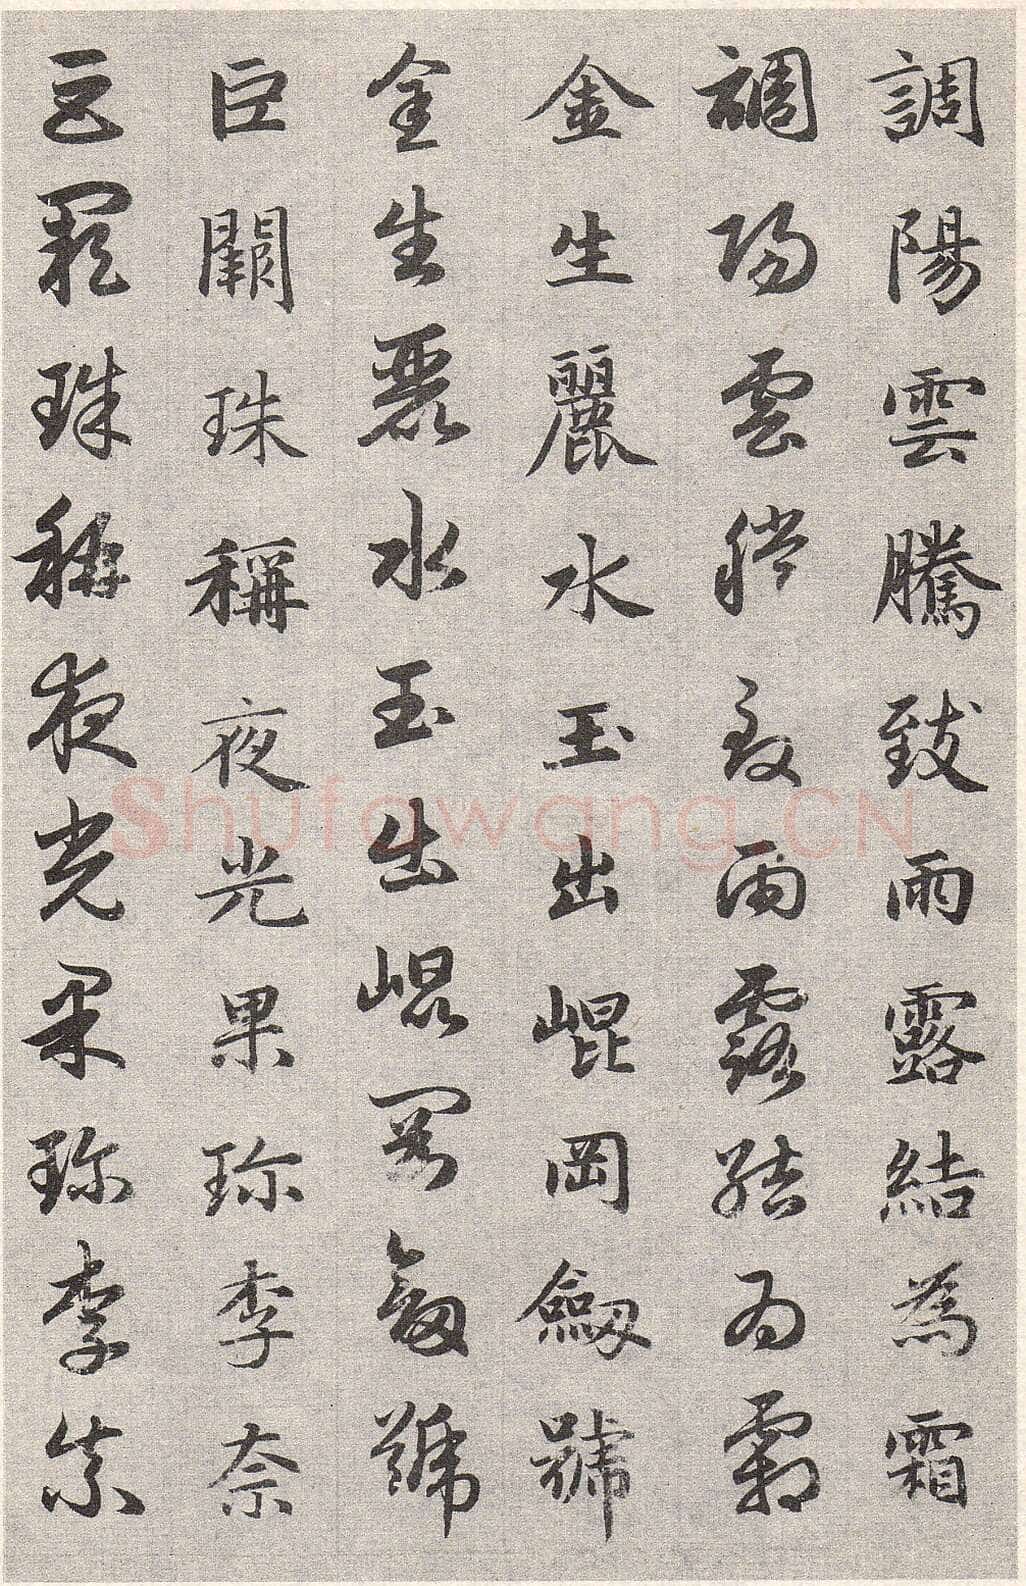 調陽雲騰致雨露結為霜
調陽雲騰致雨露結為霜
金生麗水玉出崐岡劔號
金生麗水玉出崐岡劔號
巨闕珠稱夜光果珎李柰
巨闕珠稱夜光果珎李柰
Shufawang.CN